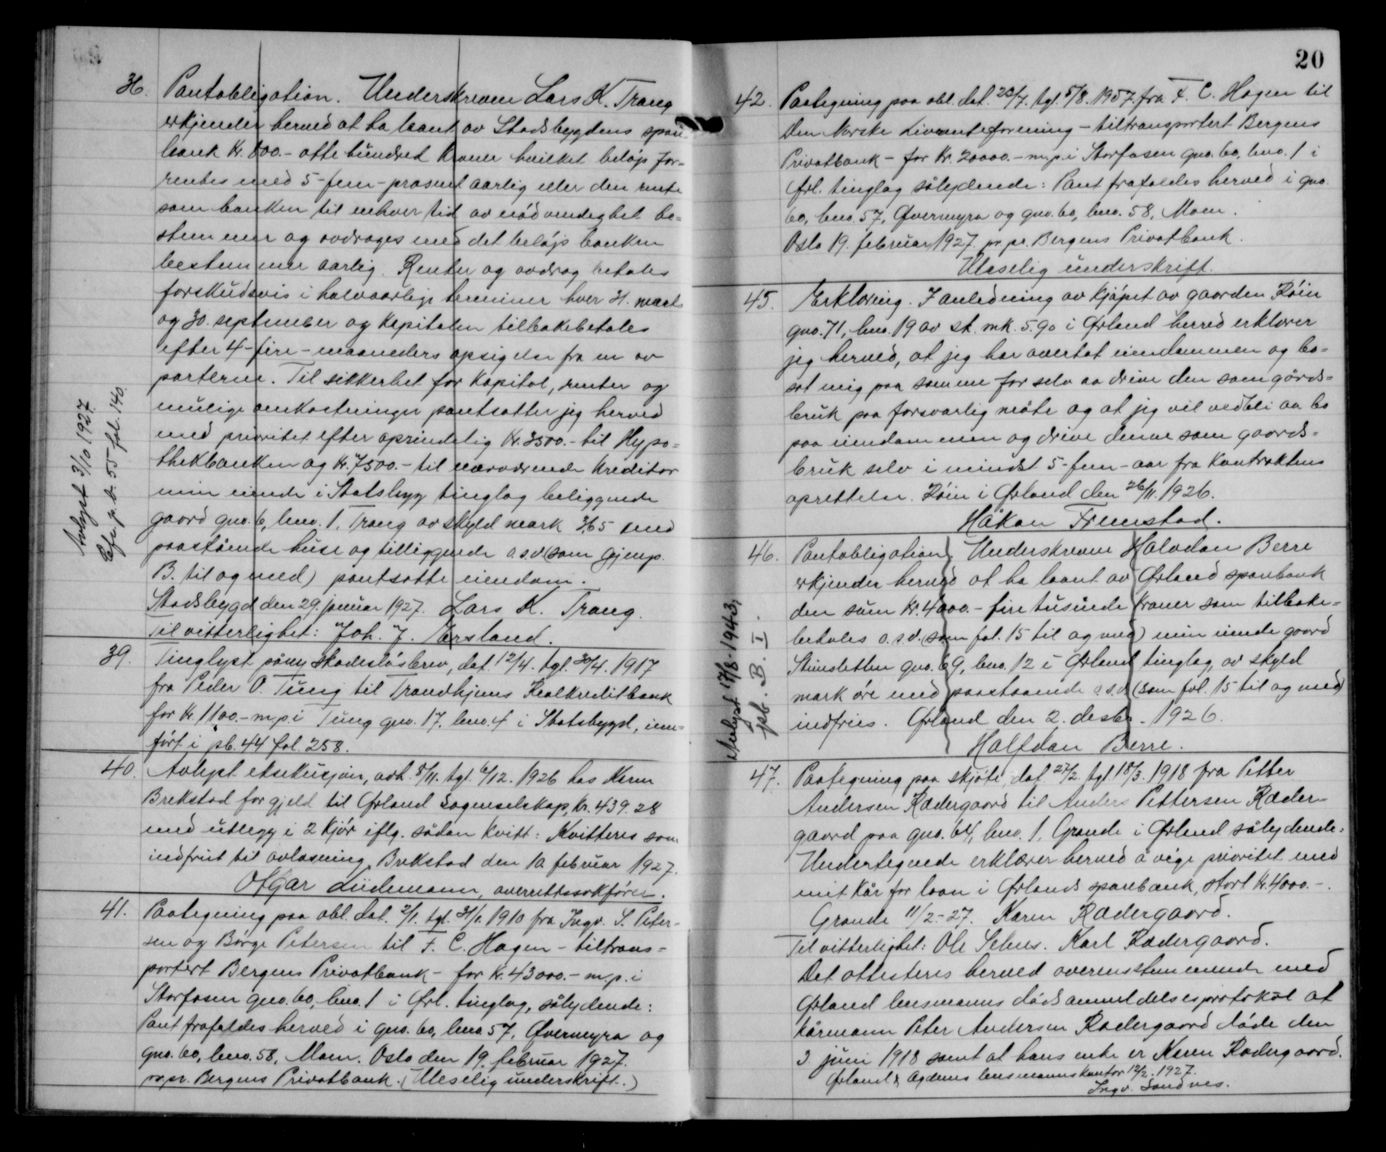 36. Pantobligation. Underskreven Lars K. Trang
erkjender herved at ha laant av Stadsbygdens spare
bank Kr. 800.- otte hundred Kroner hvilket beløp for=
rentes med 5-fem-prosent aarlig eller den rente
som banken til enhver tid av nødvendighet be=
stemmer og avdrages med det beløp banken
bestemmer aarlig. Renter og avdrag betales
forskudsvis i halvaarlige terminer hver 31. mars
og 30. september og Kapitalen tilbakebetales
efter 4-fire-maaneders opsigelse fra en av
parterne. Til sikkerhet for Kapital, renter og
mulige omkostninger pantsætter jeg herved
med prioritet efter oprindelig Kr. 3500.- til Hypo=
thekbanken og Kr. 7500.- til nærværende Kreditor
min eiende i Statsbygd tinglag beliggende
gaard gno. 6, bno. 1, Trang av skyld mark 3.65 med
paastående huse og tilliggende a.s.v. (som Gjenp.
B. til og med) pantsatte eiendom.
Stadsbygd den 29. januar 1927. Lars K. Trang.
Til vitterlighet: Joh. J. Ersland.
Avlyst 3/10 1927
Cfr. p.b. 55 fol. 140.
39. Tinglyst påny skadesløsbrev, dat. 12/4. tgl. 30/4. 1917
fra Peder O. Tung til Trondhjems Realkreditbank
for Kr. 1100.- m.p.i Tung gno. 17. bno. 4 i Statsbygd, inn=
ført i pb. 44 fol. 258.
40. Avlyst eksekusjon, avh. 8/11. tgl. 6/12. 1926 hos Karen
Brekstad for gjeld til Ørland Sagsenselskap, Kr. 439.28
med utlegg i 2 Kjør iflg. sådan Kvitt: Kvitteres som
indfriet til avlæsning. Brekstad den 10 februar 1927.
Otgar Lüdemann, overrettssakfører.
41. Paategning paa obl. dat. 2/1. tgl. 31/1. 1910 fra Ingv. S. Peter-
sen og Børge Petersen til F. C. Hagen - tiltrans=
portert Bergens Privatbank - for Kr. 43000.- m.p. i
Storfosen gno. 60, bno. 1 i Ørl. tinglag, sålydende:
Pant frafaldes herved i gno. 60, bno 57, Øvermyra og
gno. 60, bno. 58, Moen. Oslo den 19. februar 1927.
pr.pr. Bergens Privatbank. (Uleselig underskrift.)
20
42. Paategning paa obl. dat. 20/7. tgl. 5/8. 1907 fra F. C. Hagen til
Den Norske Livrenteforening - tiltransportert Bergens
Privatbank - for Kr. 20000.- m.p.i Storfosen gno. 60, bno. 1 i
Ørl. tinglag sålydende: Pant frafaldes herved i gno.
60, bno. 57, Øvermyra og gno. 60, bno. 58, Moen.
Oslo 19. februar 1927. pr.pr. Bergens Privatbank.
Uleselig underskrift.
45. Erklæring. I anledning av kjøpet av gaarden Røin
gno. 71, bno. 19 av sk. mk. 5.90 i Ørland herred erklærer
jeg herved, at jeg har overtat eiendommen og bo=
sat mig paa samme for selv aa drive den som gårds=
bruk paa forsvarlig måte og at jeg vil vedbli aa bo
paa eiendommen og drive denne som gaards=
bruk selv i mindst 5-fem-aar fra Kontraktens
oprettelse. Røin i Ørland den 26/11. 1926.
Håkon Fremstad.
46. Pantobligation. Underskrevne Halvdan Berre
erkjender herved at ha laant av Ørland sparebank
den sum Kr. 4000.- fire tusinde Kroner som tilbake=
betales a.s.v. (som fol. 15 til og med) min eiende gaard
Stinsletten gno. 69, bno. 12 i Ørland tinglag, av skyld
mark øre med paastaaende a.s.v. (som fol. 15 til og med)
indfries. Ørland den 2. desbr. 1926.
Halfdan Berre.
Avlyst 17/8. 1943,
pb. B. I.
47. Paategning paa skjøte dat. 27/2 tgl. 18/3. 1918 fra Petter
Andersen Rædergaard til Anders Pettersen Ræder-
gaard paa gno. 64, bno. 1, Grande i Ørland sålydende:
Undertegnede erklærer herved å vige prioritet med
mit Kår for laan i Ørlands sparebank, stort Kr. 4000.-.
Grande 11/2-27. Karen Rædergaard.
Til vitterlighet: Ole Selnes. Karl Rædergaard.
Det attesteres herved overensstemmende med
Ørland lensmanns dødsanmeldelsesprotokol at
kårmann Peter Andersen Rædergaard døde den
3 juni 1918 samt at hans enke er Karen Rædergaard.
Ørland & Agdenes lensmannskontor 12/2. 1927.
Ingv. Sandnes.